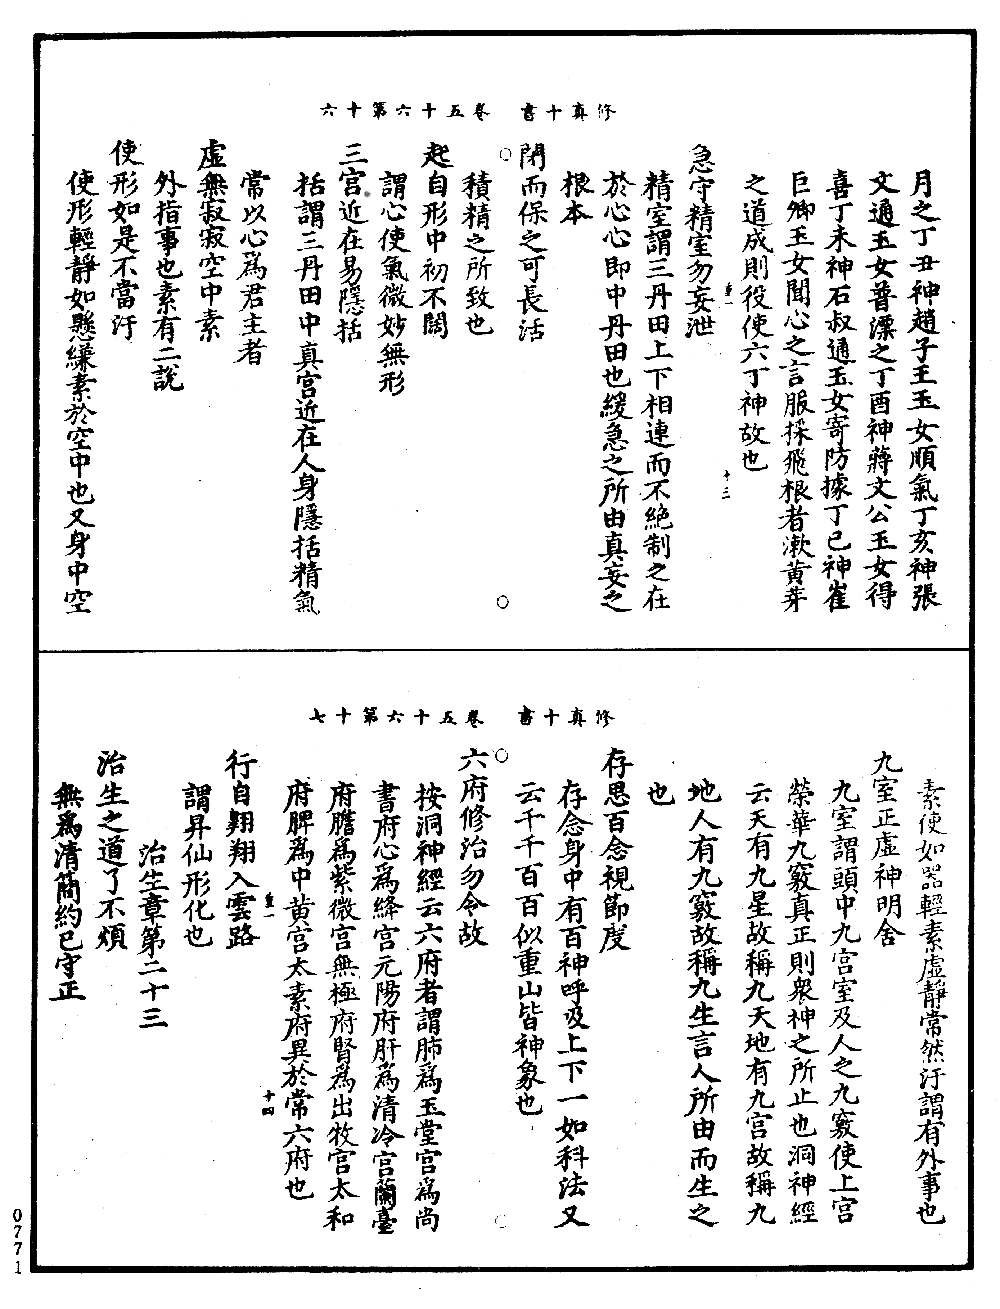 修真十書　卷五十六第十六
月之丁丑神趙子王玉女順氣丁亥神張
文通玉女普漂之丁酉神蔣文公玉女得
喜丁未神石叔通玉女寄防據丁巳神崔
巨卿玉女聞心之言服採飛根者漱黃芽
之道成則役使六丁神故也
重一　十三
急守精室勿妄泄
精室謂三丹田上下相連而不絶制之在
於心心即中丹田也緩急之所由真妄之
根本
閉而保之可長活
積精之所致也
起自形中初不闊
謂心使氣微妙無形
三宮近在易隱括
括謂三丹田中真宮近在人身隱括精氣
常以心為君主者
虛無寂寂空中素
外指事也素有二說
使形如是不當汙
使形輕靜如懸縑素於空中也又身中空
修真十書　卷五十六第十七
素使如器輕素虛靜常然汙謂有外事也
九室正虛神明舍
九室謂頭中九宮室及人之九竅使上宮
榮華九竅真正則衆神之所止也洞神經
云天有九星故稱九天地有九宮故稱九
地人有九竅故稱九生言人所由而生之
也
存思百念視節度
存念身中有百神呼吸上下一如科法又
云千千百百似重山皆神象也
六府修治勿令故
按洞神經云六府者謂肺為玉堂宮為尚
書府心為絳宮元陽府肝為清冷宮蘭臺
府膽為紫微宮無極府腎為出牧宮太和
府脾為中黃宮太素府異於常六府也
重一　十四
行自翱翔入雲路
謂昇仙形化也
治生章第二十三
治生之道了不煩
無為清簡約己守正
0771